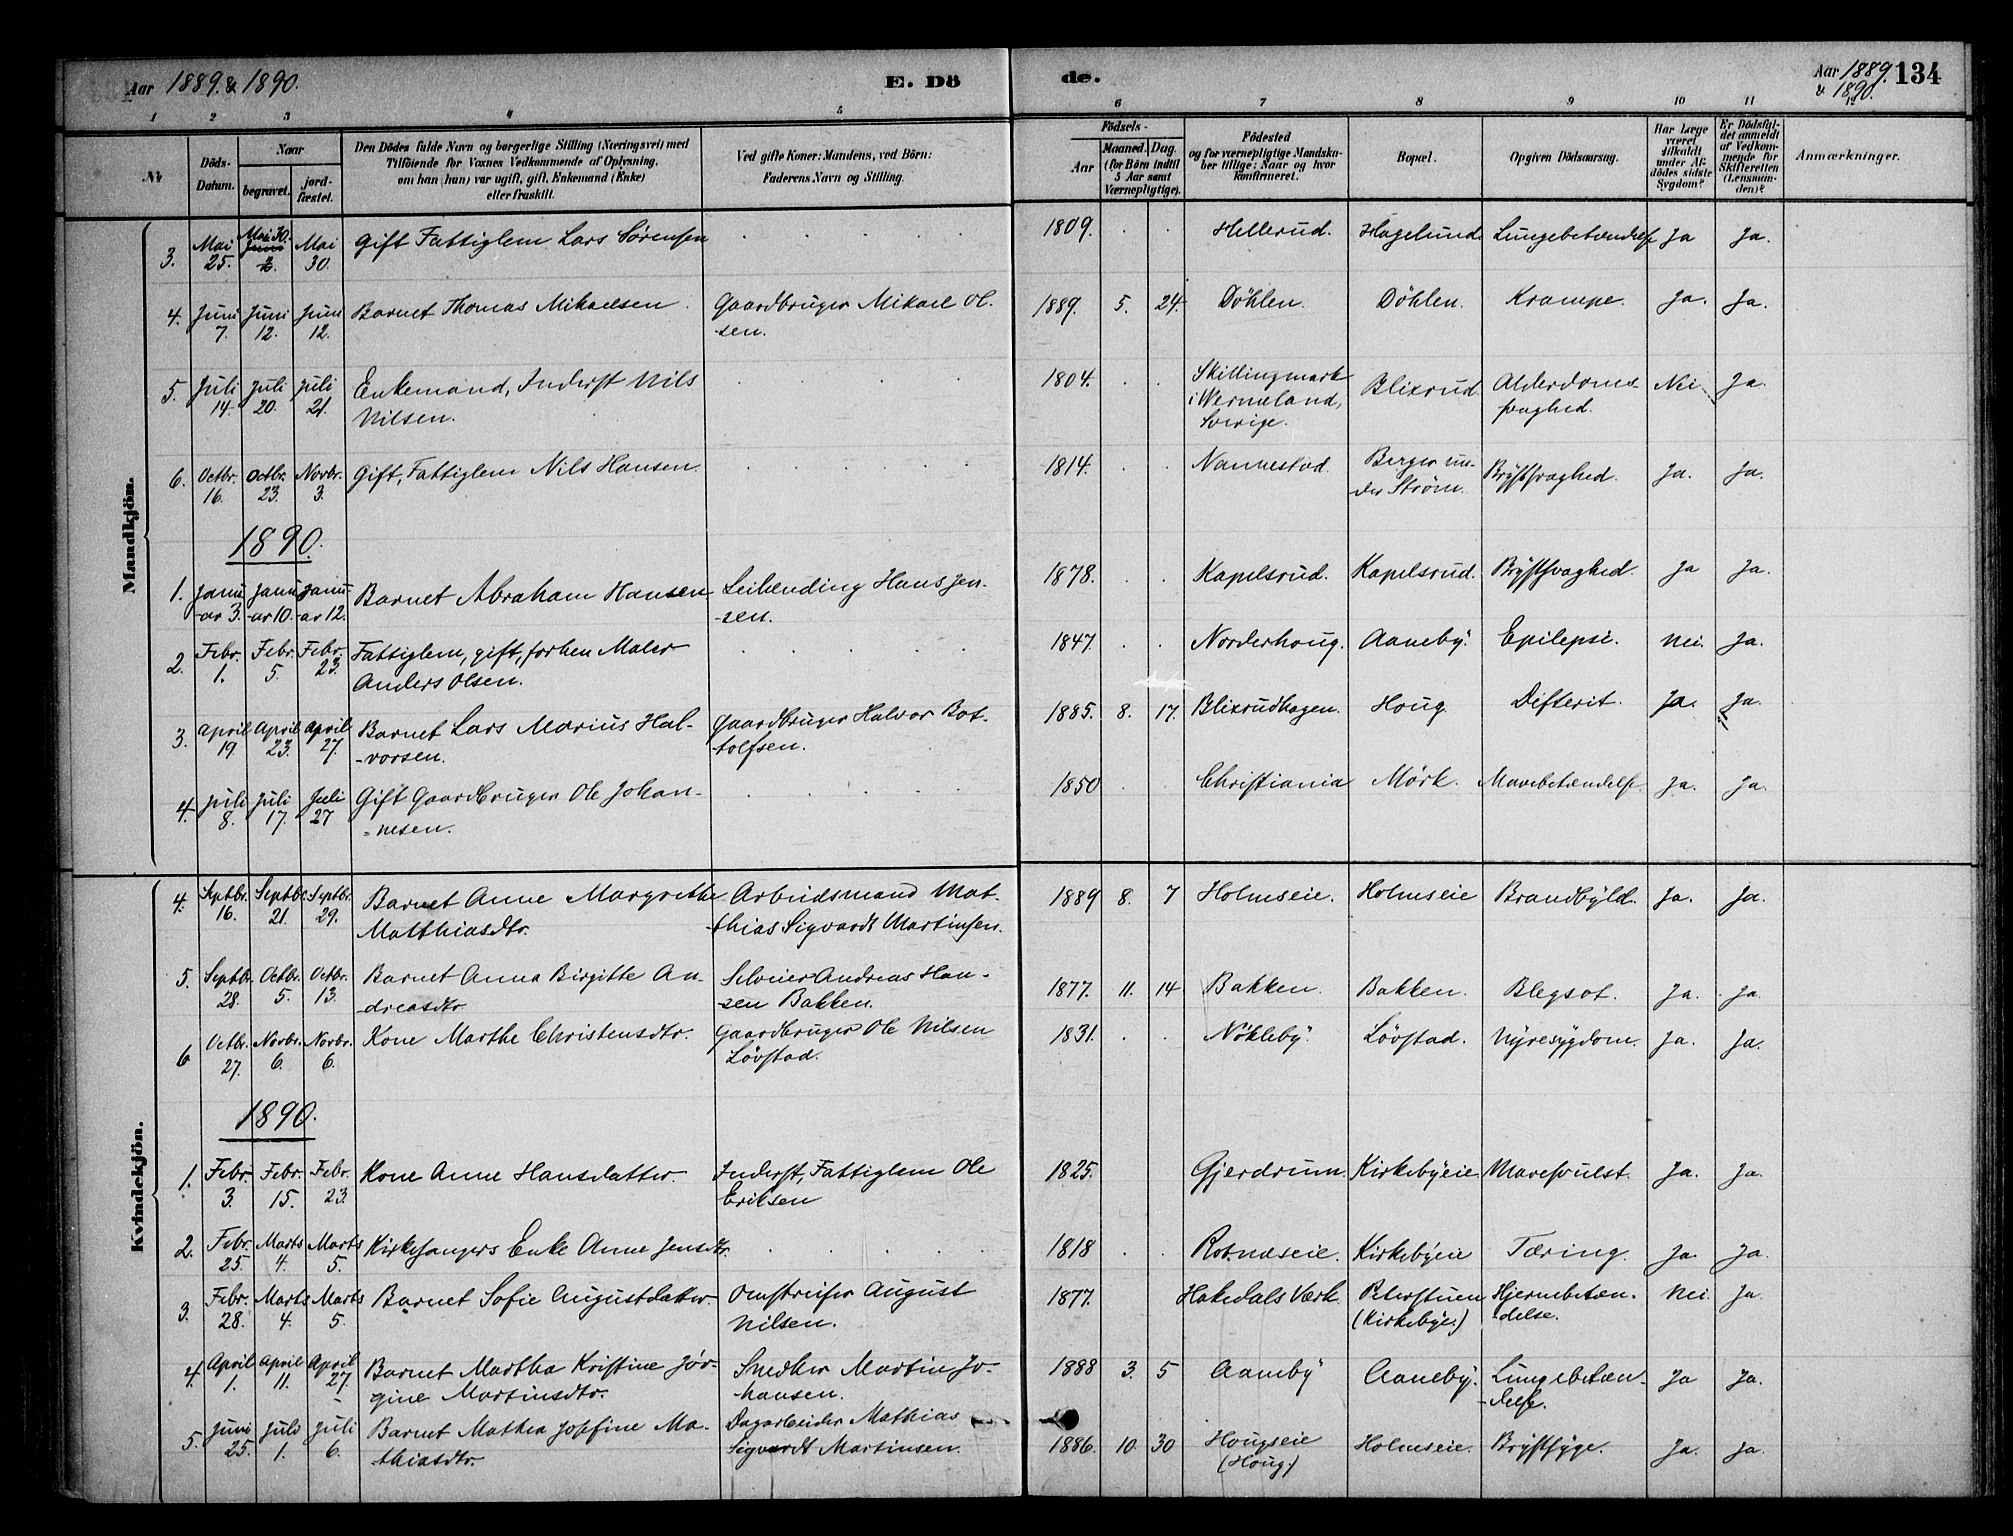 Aar 1889 & 1890. E. Dö
de. Aar 1889. & 1890. 134
1 2 3 4 5
6 7 8 9 10 11 12
№ Döds-Datum. Naar begravet. jordfæstet. Den Dödes fulde Navn og borgerlige Stilling (Næringsvei) med Tilföiende for Voxnes Vedkommende af Oplysning, om han (hun) var ugift, gift, Enkemand (Enke) eller fraskilt. Ved gifte Koner: Mandens, ved Börn: Faderens Navn og Stilling.
Födsels- Aar Maaned. Dag. (for Börn indtil 5 Aar samt Værnepligtige). Födested og for værnepligtige Mandskaber tillige: Naar og hvor konfirmeret. Bopæl. Opgiven Dödsaarsag. Har Læge været tilkaldt under Afdödes sidste Sygdom? Er Dödsfaldet anmeldt af Vedkommende for Skifteretten (Lensmanden)? Anmærkninger.
Mandkjön.
3. Mai 25. Mai 30. Juni 2. Mai 30. Gift Fattiglem Lars Sörensen 1809. Hellerud. Hagelund Lungebetændelse Ja Ja.
4. Juni 7. Juni 12. Juni 12. Barnet Thomas Mikaelsen Gaardbruger Mikael Ol-
-sen. 1889. 5. 24. Döhlen. Döhlen. Krampe. Ja. Ja.
5. Juli 14. Juli 20. Juli 21. Enkemand, Inderst Nils
Nilsen. 1804. Skillingmark
i Wermeland,
Sverige. Blixrud Alderdoms
svaghed. Nei Ja.
6. Octbr. 16. Octbr. 23. Novbr. 3. Gift, Fattiglem Nils Hansen. 1814. Nannestad. Berger un-
der Ström. Brystsvaghed. Ja. Ja.
1890.
1. Janu-
-ar 3. Janu-
-ar 10. Janu-
-ar 12. Barnet Abraham Hansen Leilending Hans Jen-
-sen. 1878. Kapelsrud. Kapelsrud. Brystsvaghed. Ja Ja.
2. Febr. 1. Febr. 5. Febr. 23. Fattiglem, gift, forhen Maler
Anders Olsen. 1847. Norderhoug. Aaneby. Epilepsi. Nei. Ja.
3. April 19. April 23. April 27. Barnet Lars Marius Hal-
-vorsen. Gaardbruger Halvor Bot-
-tolfsen. 1885. 8. 17. Blixrudhagen. Houg Difterit. Ja. Ja.
4. Juli 8. Juli 17. Juli 27 Gift Gaardbruger Ole Johan-
-nesen. 1850 Christiania Mörk. Mavebetændelse. Ja. Ja.
Kvindekjön.
4. Septbr. 16. Septbr. 21. Septbr. 29. Barnet Anne Margrethe
Matthiasdtr. Arbeidsmand Mat-
-thias Sigvardt Martinsen. 1889 8. 7 Holmseie. Holmseie Brandbyld. Ja. Ja.
5. Septbr. 28. Octbr. 5. Octbr. 13. Barnet Anna Birgitte An-
dreasdtr. Selveier Andreas Han-
sen Bakken. 1877. 11. 14 Bakken. Bakken. Blegsot. Ja. Ja.
6 Octbr. 27. Novbr. 6. Novbr. 6. Kone Marthe Christensdtr. Gaardbruger Ole Nilsen
Lövstad. 1831. Nökleby. Lövstad. Nyresygdom. Ja. Ja.
1890.
1. Febr. 3. Febr. 15. Febr. 23. Kone Anne Hansdatter. Inderst, Fattiglem Ole
Eriksen 1825. Gjerdrum. Kirkebyeie Mavesvulst. Ja. Ja.
2. Febr. 25. Marts 4. Marts 5. Kirkesangers Enke Anne Jensdtr. 1818 Rotnæseie. Kirkebyeie Tæring. Ja. Ja.
3. Febr. 28. Marts 4. Marts 5. Barnet Sofie Augustdatter. Omstreifer August
Nilsen. 1877. Hakedals Værk. Peterstuen
(Kirkebye.) Hjernebetæn-
delse. Nei. Ja.
4. April 1. April 11. April 27. Barnet Martha Kristine Jör-
gine Martinsdtr. Snedker Martin Jo-
-hansen. 1888 3. 5 Aaneby Aaneby. Lungebetæn-
-delse. Ja Ja.
5. Juni 25. Juli 1. Juli 6. Barnet Mathea Josefine Ma-
thiasdtr. Dagarbeider Mathias
Sigvardt Martinsen. 1886. 10. 30 Hougseie
(Houg.) Holmseie. Brystsyge. Ja. Ja.